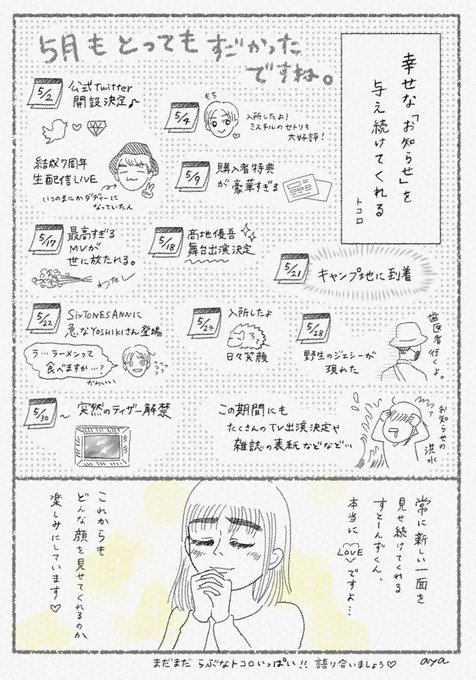 幸せな「お知らせ」を
与え続けてくれる
トコロ
5月もとってもすごかった
ですね。
5/2
公式Twitter
開設決定♪
5/4
もち
入所したよ!
ミスチルのセトリも
大好評!
結成7周年
生配信LIVE
いつのまにかダディーに
なっていた人
5/9
購入者特典
が豪華すぎる
5/17
最高すぎる
MVが
世に放たれる。
わたし
5/18
髙地優吾
舞台出演決定
5/21
キャンプ地に到着
5/22
SixTONESANNに
急なYOSHIKIさん登場
ラ…ラーメンって
食べますか…?
かわいい
5/24
入所したよ
日々笑顔
5/28
野生のジェシーが
現れた
歯医者行くよ。
5/30
〜突然のティザー解禁
この期間にも
たくさんのTV出演決定や
雑誌の表紙などなど…
お知らせの
洪水
常に新しい一面を
見せ続けてくれる
すとーんずくん、
本当にLOVEですよ…
これからも
どんな顔を見せてくれるのか
楽しみにしています♡
まだまだ らぶなトコロいっぱい!! 語り合いましょう♡
aya